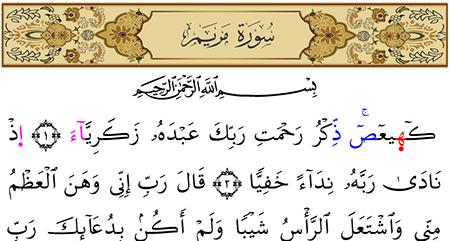 سُورَةُ مَرْيَم
بِسْمِ اللَّهِ الرَّحْمَٰنِ الرَّحِيمِ
كٓهيعٓصٓ ۚ ذِّكْرُ رَحْمَتِ رَبِّكَ عَبْدَهُۥ زَكَرِيَّآءَ ﴿١﴾ إِذْ
نَادَىٰ رَبَّهُۥ نِدَآءً خَفِيًّا ﴿٢﴾ قَالَ رَبِّ إِنِّى وَهَنَ ٱلْعَظْمُ
مِنِّى وَٱشْتَعَلَ ٱلرَّأْسُ شَيْبًا وَلَمْ أَكُنۢ بِدُعَآئِكَ رَبِّ